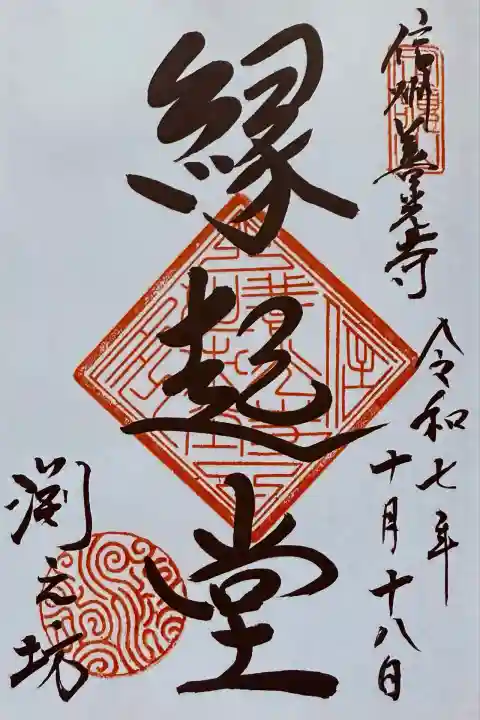 信州善光寺
令和七年
十月十八日
縁起堂
渕之坊